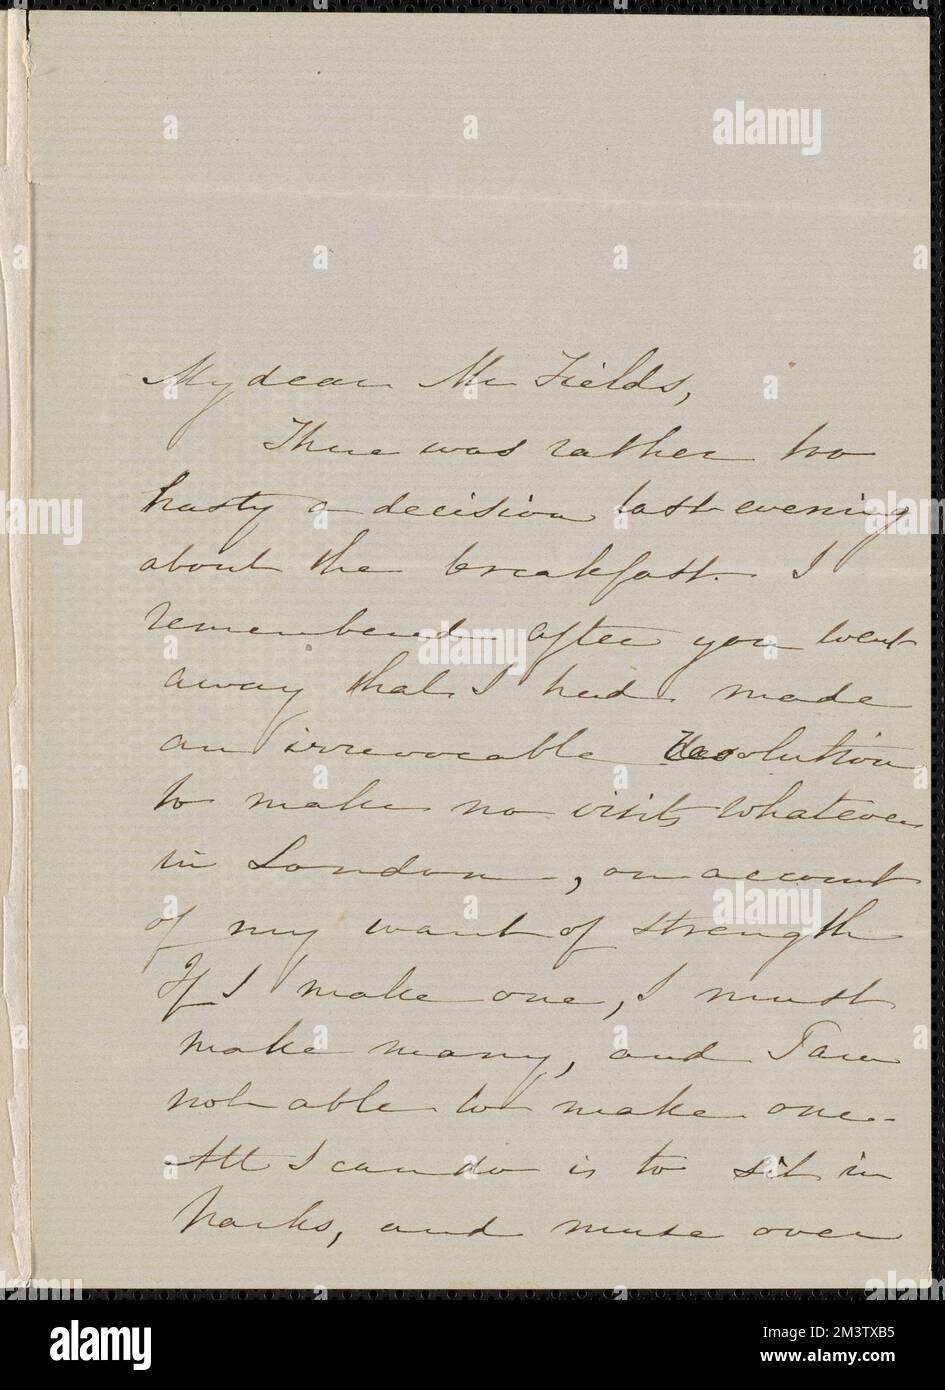 My dear Mr Fields,
There was rather too
hasty a decision last evening
about the breakfast. I
remembered after you went
away that I had made
an irrevocable Resolution
to make no visits whatever
in London, on account
of my want of strength
If I make one, I must
make many, and I am
not able to make one.
All I can do is to sit in
Parks, and muse over
alamy
Image ID: 2M3TXB5
www.alamy.com